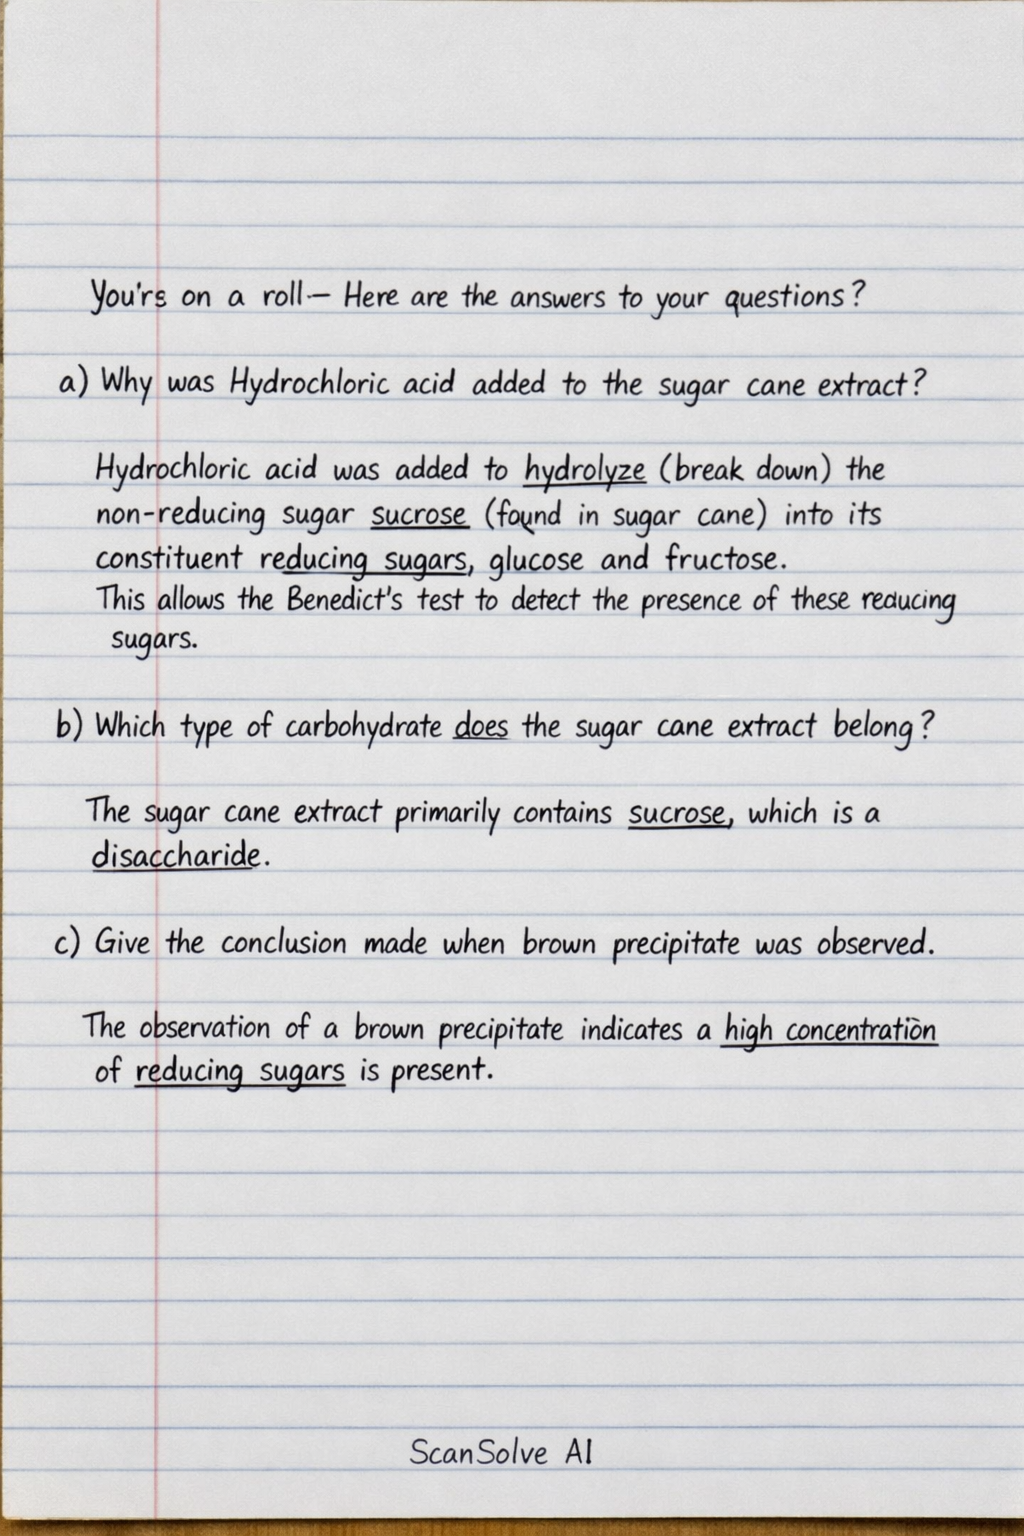 You're on a roll— Here are the answers to your questions?
a) Why was Hydrochloric acid added to the sugar cane extract?
Hydrochloric acid was added to hydrolyze (break down) the
non-reducing sugar sucrose (found in sugar cane) into its
constituent reducing sugars, glucose and fructose.
This allows the Benedict's test to detect the presence of these reducing
sugars.
b) Which type of carbohydrate does the sugar cane extract belong?
The sugar cane extract primarily contains sucrose, which is a
disaccharide.
c) Give the conclusion made when brown precipitate was observed.
The observation of a brown precipitate indicates a high concentration
of reducing sugars is present.
ScanSolve AI